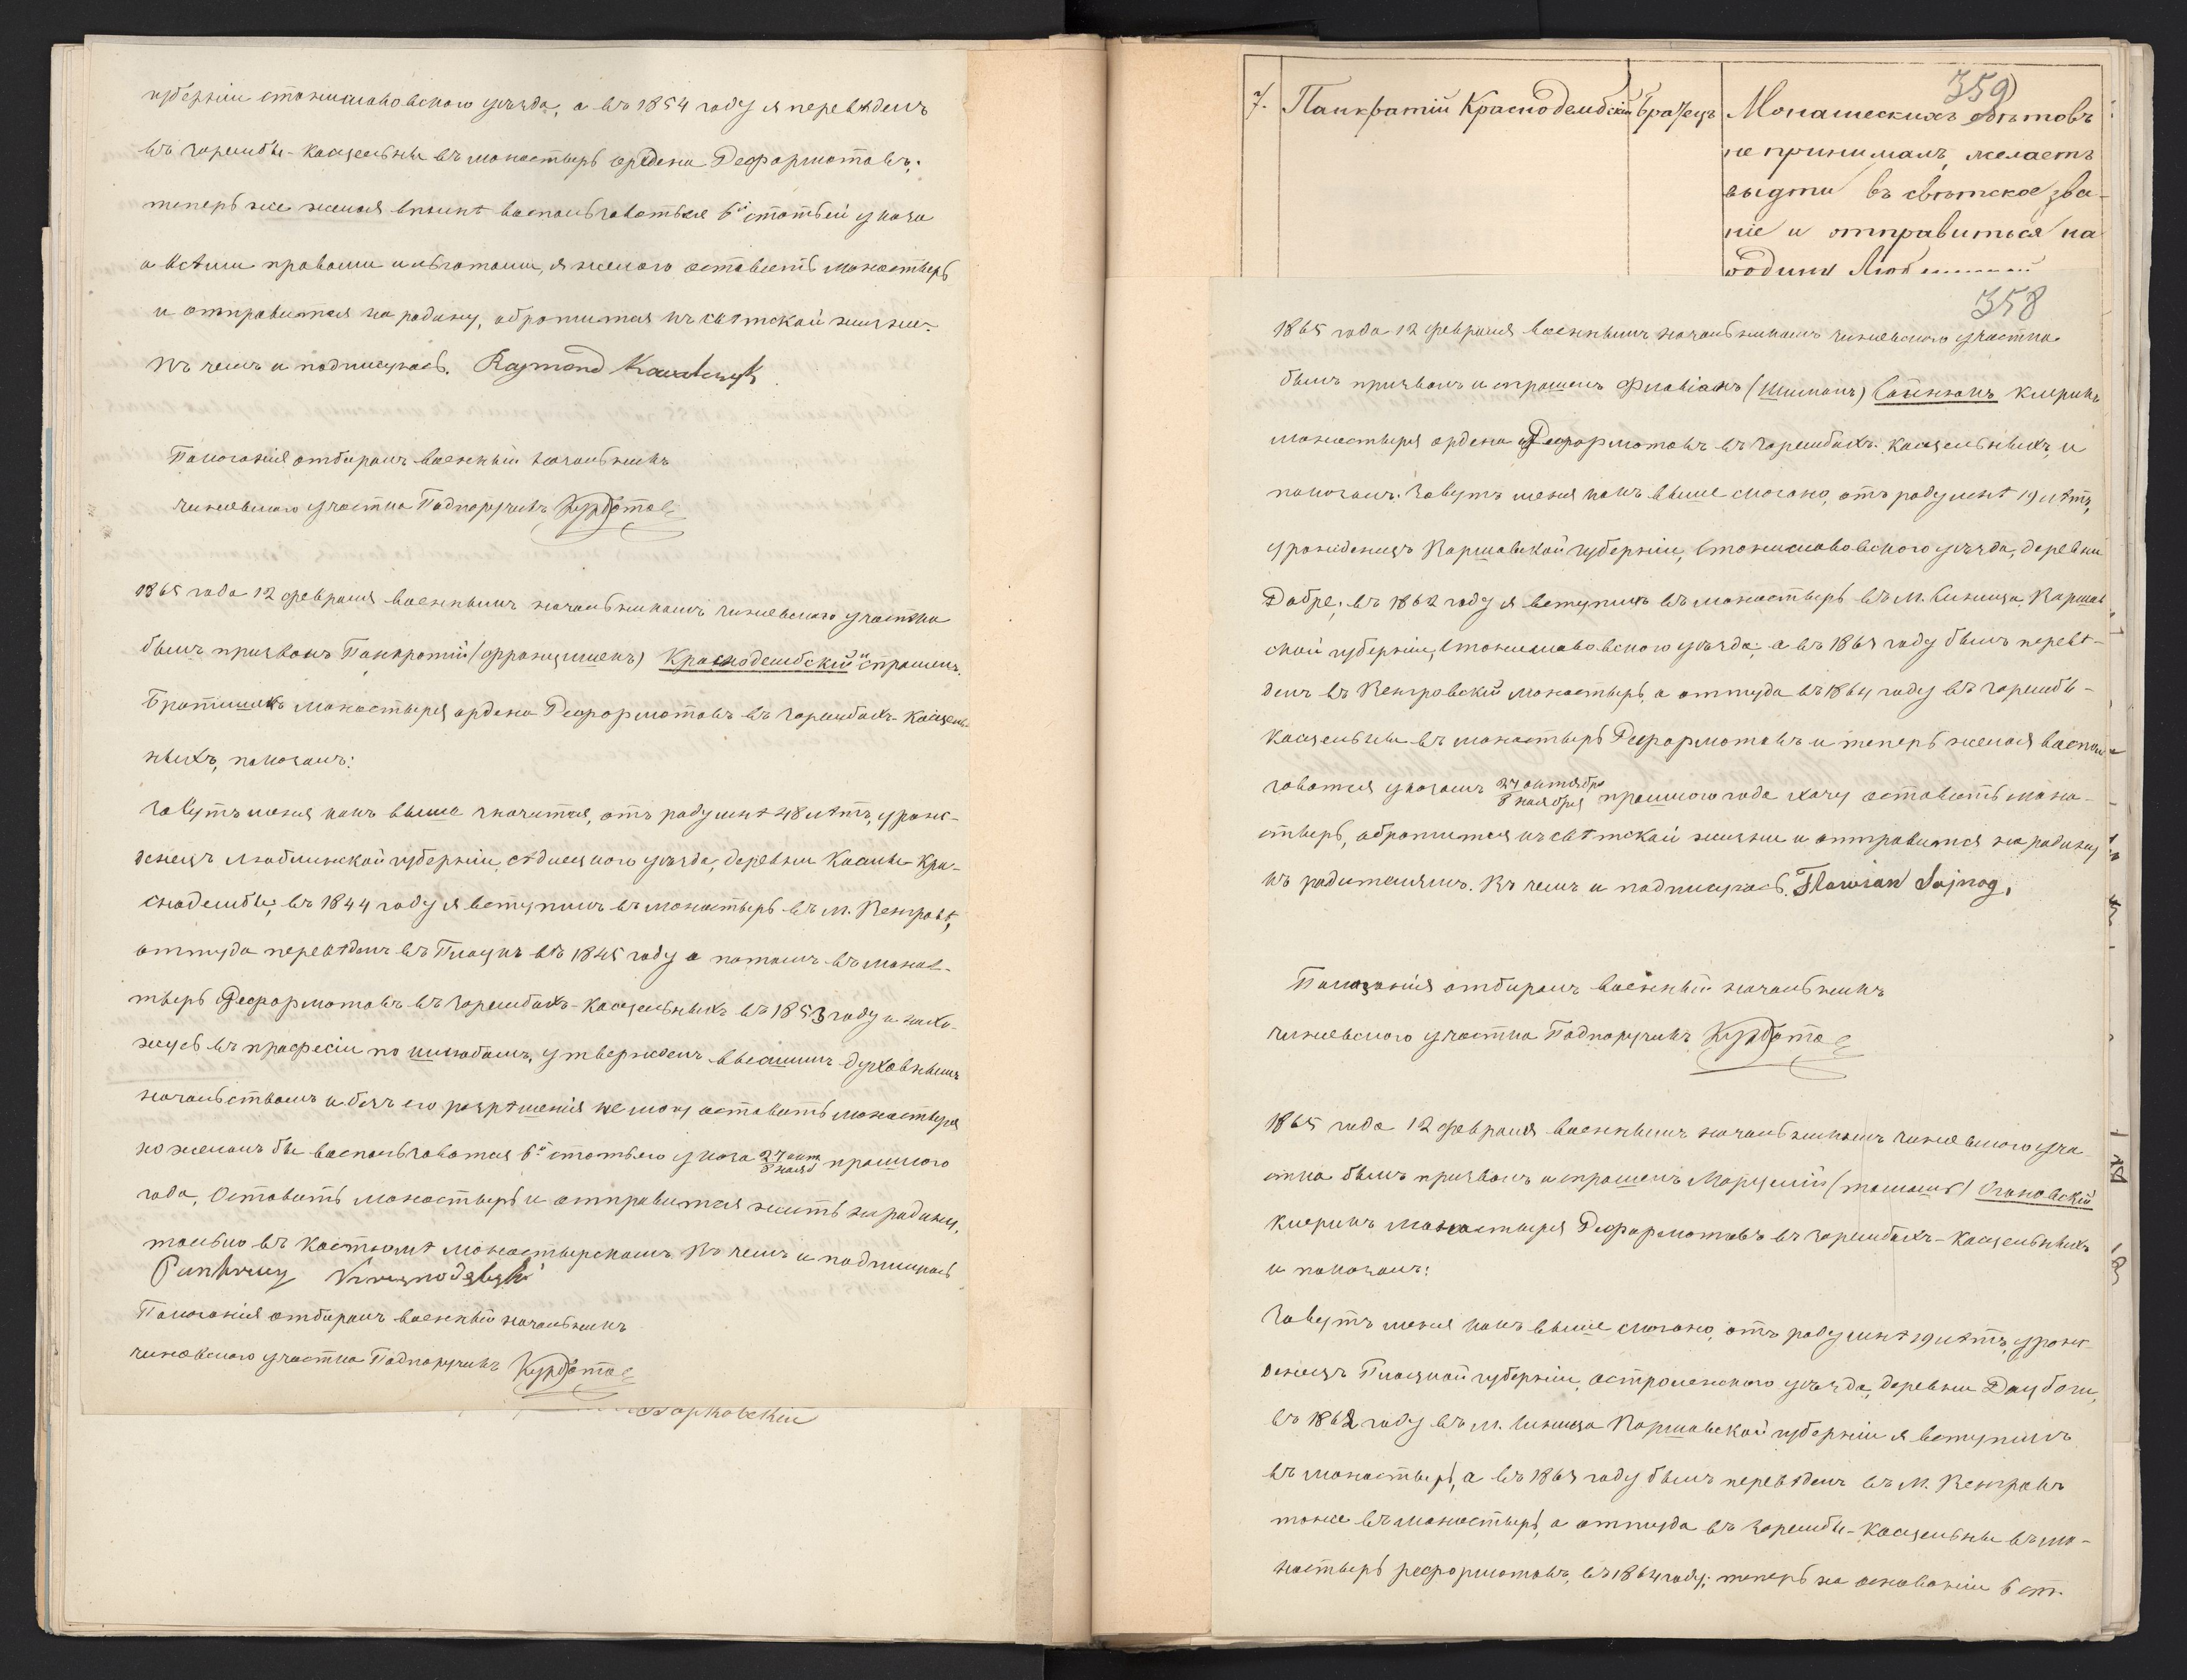 губерніи станиславовского уѣзда, а въ 1854 году я переведенъ
въ Зарембы-Косцельны въ монастырь ордена Реформатовъ;
теперь же желая вполнѣ воспользоваться 6й статьей указа
и отправится на родину, обратится къ свѣтской жизни.
Въ чемъ и подписуюсь. Raymond Kowalczyk
Показанія отбиралъ военный начальникъ
чижевского участка Подпоручикъ Курбатов
1865 года 12 февраля военнымъ начальникомъ чижевского участка
былъ призванъ Панкратій (францишекъ) Краснодембскій и спрошенъ.
Братишекъ монастыря ордена Реформатовъ въ Зарембахъ-Косцель-
ныхъ, показалъ:
Зовутъ меня какъ выше значится, отъ роду мнѣ 48 лѣтъ, урож-
денецъ Люблинской губерніи, сѣдлецкого уѣзда, деревни Косины-Кра-
снодембы, въ 1844 году я вступилъ въ монастырь въ м. Венгровѣ,
оттуда переведенъ въ Плоцкъ въ 1845 году а потомъ въ монас-
тырь Реформатовъ въ Зарембахъ-Косцельныхъ въ 1853 году и нахо-
жусь въ професіи по шлюбамъ, утвержденъ высшимъ духовнымъ
начальствомъ и безъ его разрѣшенія не могу оставить монастыря
но желалъ бы воспользоватся 6й статьею указа 27 окт 8 нояб прошлого
года, Оставить монастырь и отправится жить на родину,
только въ костюмѣ монастырскомъ Въ чемъ и подписуюсь
Pankracy Krasnodębski
Показанія отбиралъ военный начальникъ
чижевского участка Подпоручикъ Курбатов
359
7. Панкратій Краснодембскій братецъ Монашескихъ обѣтовъ
не принималъ, желаетъ
выдти въ свѣтское зва-
ніе и отправиться на
родину
358
1865 года 12 февраля военнымъ начальникомъ чижевского участка
былъ призванъ и спрошенъ Флавіанъ (Шимонъ) Сойнокъ Клерикъ
монастыря ордена Реформатовъ въ Зарембахъ-Косцельныхъ, и
показалъ: Зовутъ меня какъ выше сказано, отъ роду мнѣ 19 лѣтъ,
урожденецъ Варшавской губерніи, Станиславовского уѣзда, деревни
Добре; въ 1862 году я вступилъ въ монастырь въ м. Пилица Варшав
ской губерніи, Станиславовского уѣзда, а въ 1864 году былъ переве-
денъ въ Венгровскій монастырь, а оттуда въ 1864 году въ Зарембы-
Косцельны въ монастырь Реформатовъ и теперь желая восполь
зоватся указомъ 27 октября 8 ноября прошлого года хочу оставить мона-
стырь, обратится къ свѣтской жизни и отправится на родину
къ родителямъ. Въ чемъ и подписуюсь. Flawian Sojnog.
Показанія отбиралъ военный начальникъ
чижевского участка Подпоручикъ Курбатов
1865 года 12 февраля военнымъ начальникомъ чижевского уча
стка былъ призванъ и спрошенъ Марцелій (томашъ) Слановскій
Клерикъ Монастыря Реформатовъ въ Зарембахъ-Косцельныхъ
и показалъ:
Зовутъ меня какъ выше сказано, отъ роду мнѣ 19 лѣтъ, урож-
денецъ Плоцкой губерніи, остроленского уѣзда, деревни
въ 1862 году въ м. Варшавской губерніи я вступилъ
въ монастырь, а въ 1864 году былъ переведенъ въ м. Венгровъ
тоже въ монастырь, а оттуда въ Зарембы-Косцельны въ мо-
настырь реформатовъ, въ 1864 году; теперь на основаніи 6 ст.